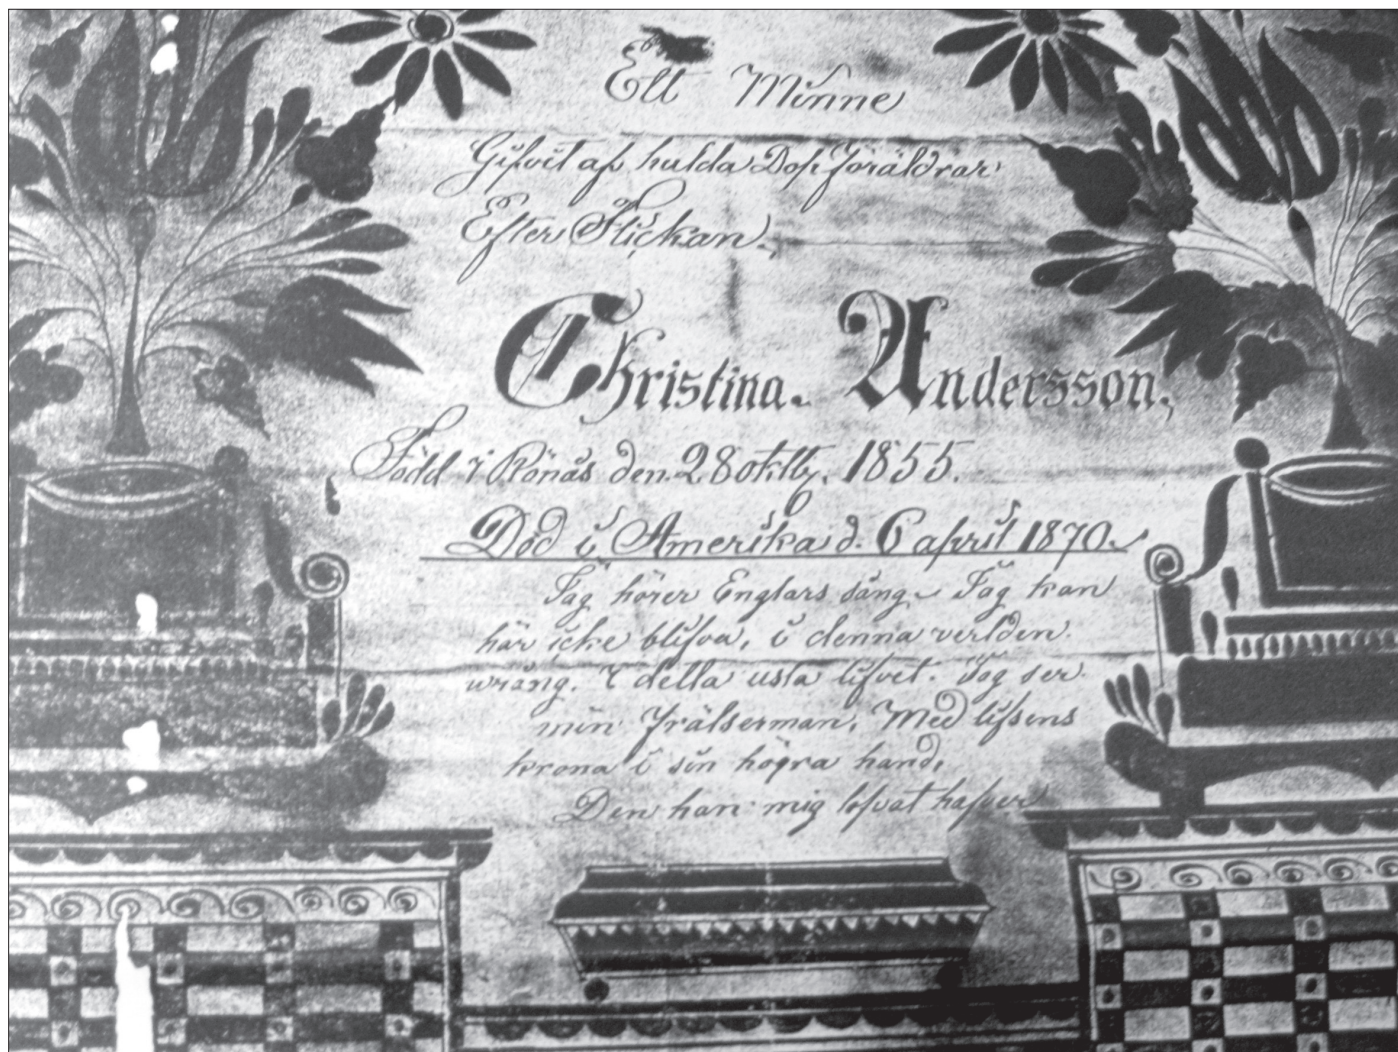 Ett Minne
Gifvit af hulda Dop Föräldrar
Efter Flickan.
Christina. Andersson,
Född i Rönäs den 28 oktb. 1855.
Död i Amerika d. 6 april 1870.
Jag hörer Englars sång. Jag kan
här icke blifva, i denna verlden
wrång. I detta usla lifvet. Jag ser
min Frälserman, Med lifsens
krona i sin högra hand,
Den han mig lofvat hafver